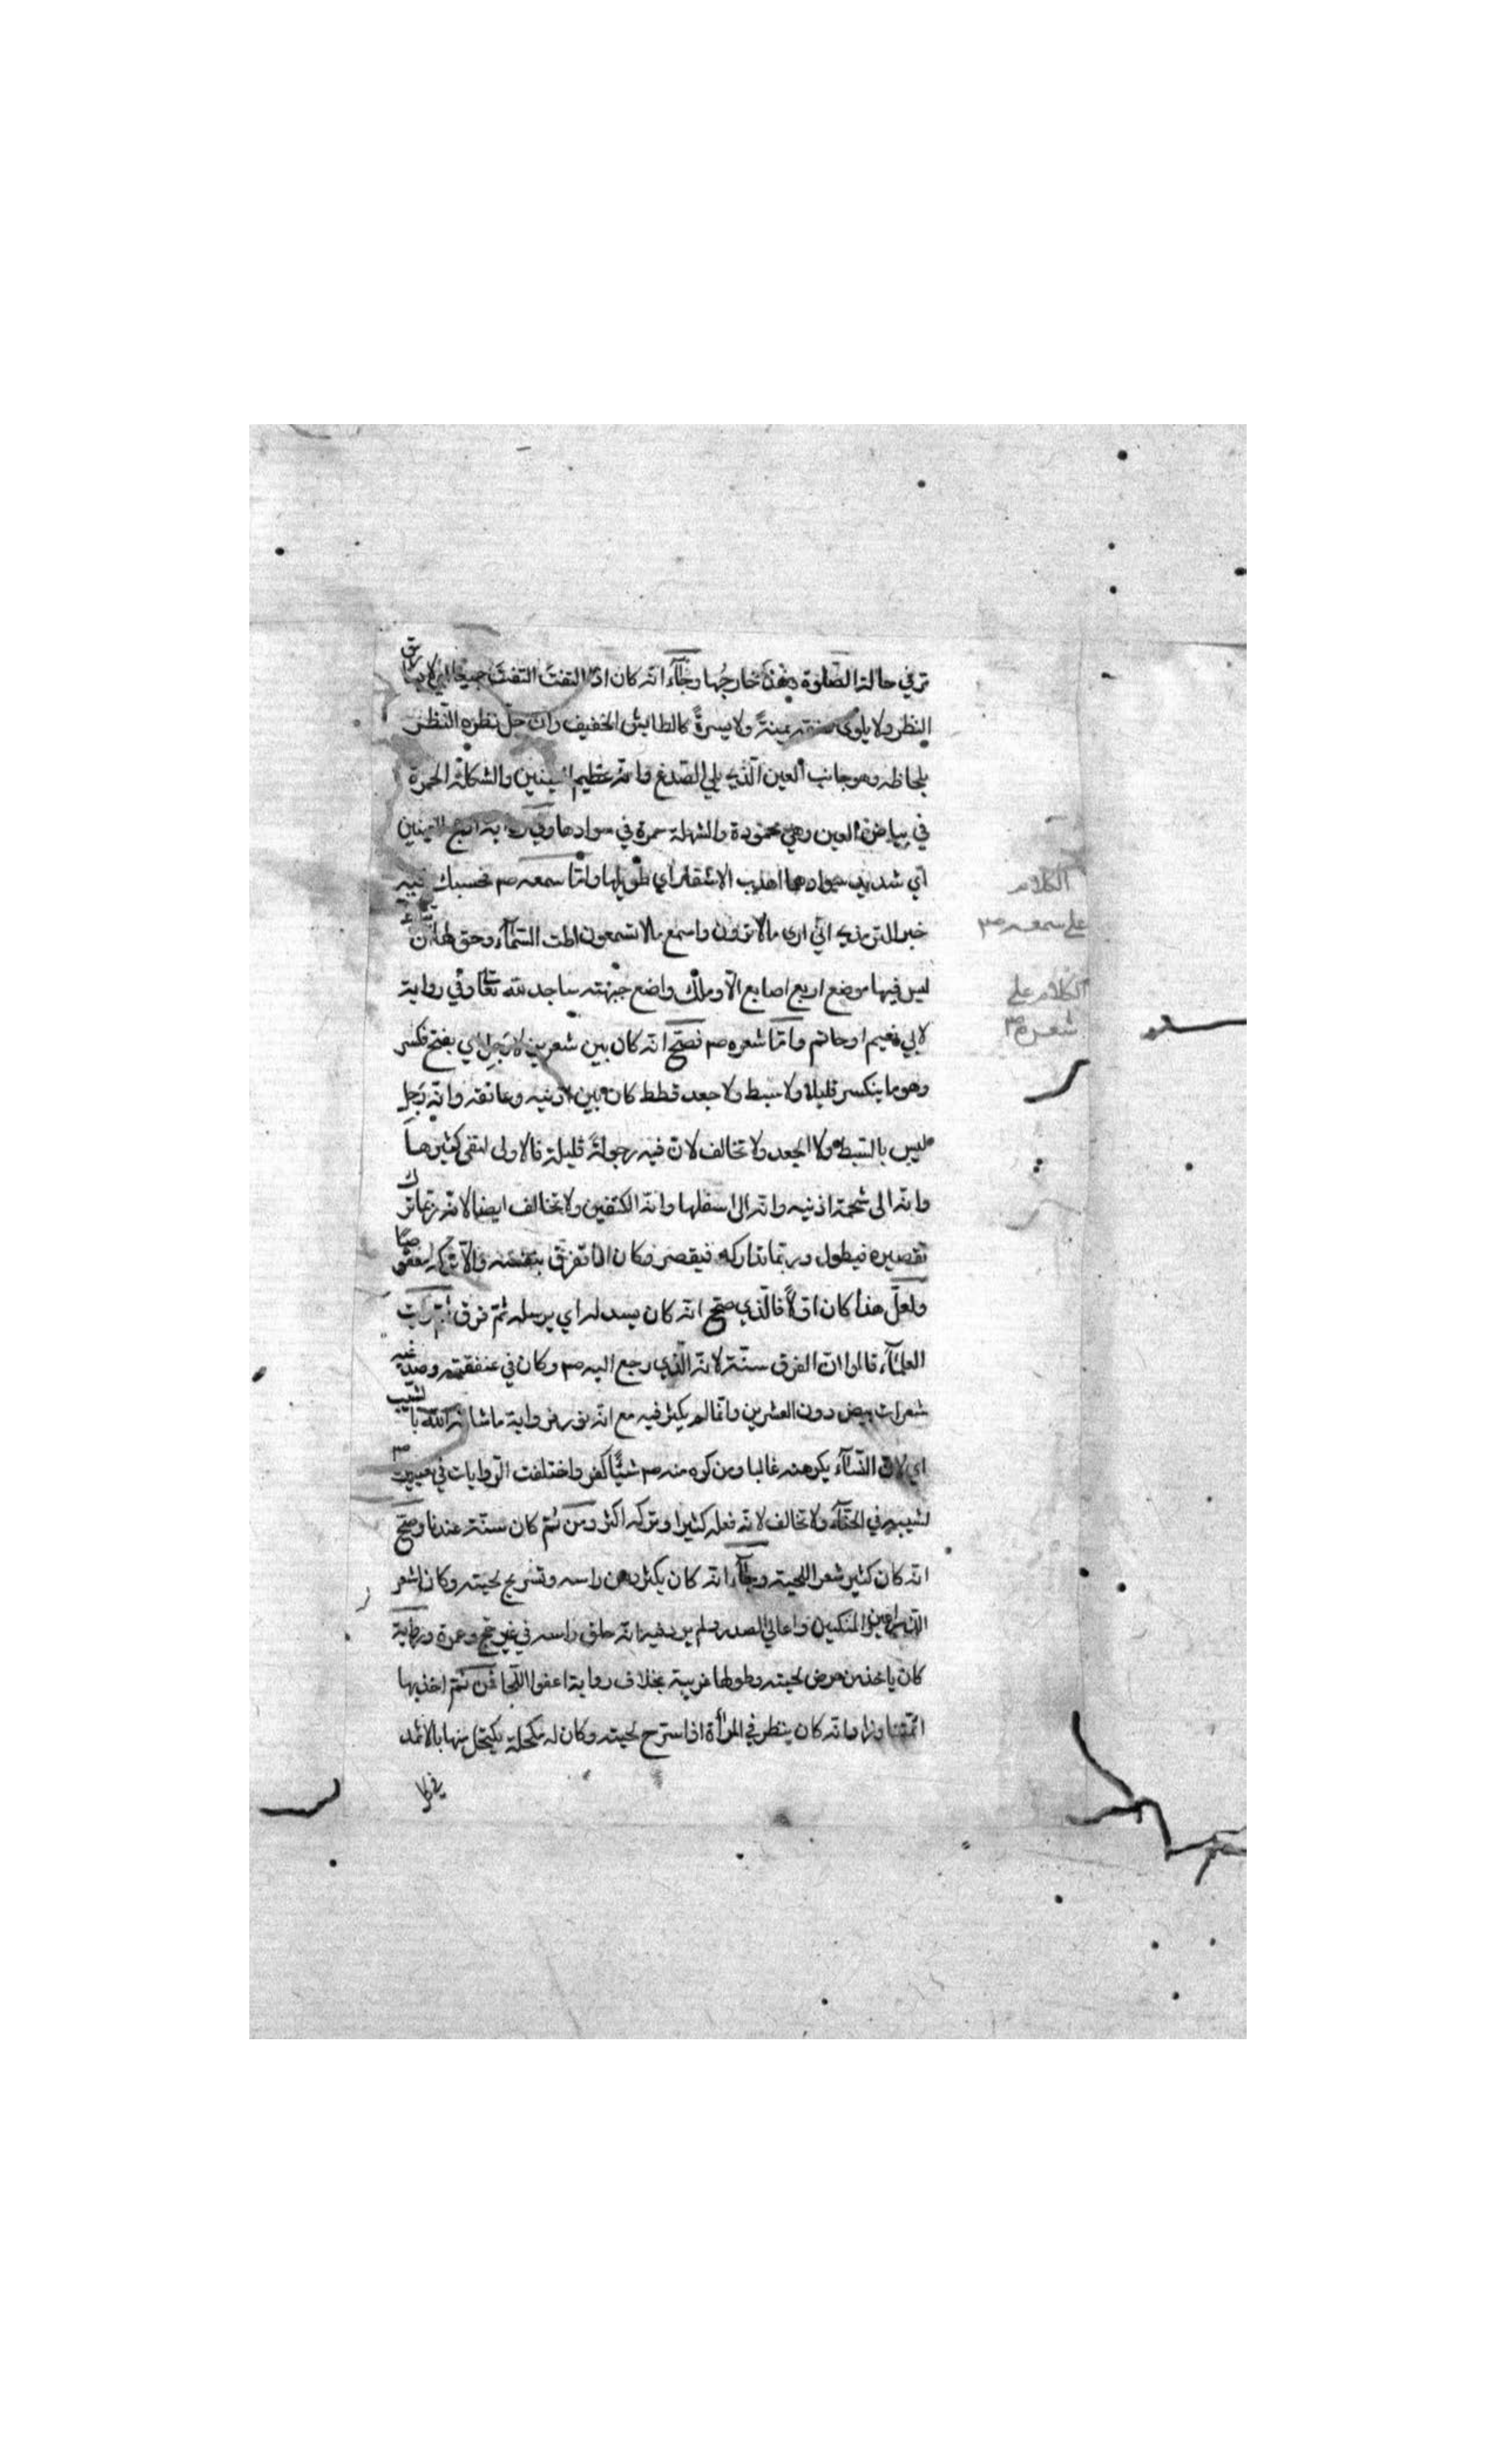 ترى في حالة الصلوة وهذه خارجها وجاء انه كان اذا التفت التفت جميعا اي لا يسارق
النظر ولا يلوى عنقه يمينةً ولا يسرةً كالطايش الخفيف وان جلّ نظره النظر
بلحاظه وهو جانب العين الذي يلي الصدغ وانه عظيم العينين والشكلة الحمرة
في بياض العين وهي محمودة والشهلة حمرة في سوادها وفي رواية ادعج العينين
اي شديد سوادهما اهدب الاشفار اي طويلها وامّا سمعه صم فحسبك فيه
خبر الترمذي اني ارى مالا ترون واسمع مالا تسمعون اطت السمآء وحق لها ان تئط
ليس فيها موضع اربع اصابع الّا وملك واضع جبهته ساجد لله تعا وفي رواية
لابي نعيم او حاتم وامّا شعره صم فصحّ انه كان بين شعرين لا رَجِل اي بفتح فكسر
وهو ما ينكسر قليلا ولا سبط ولا جعد قطط كان بين اذنيه وعاتقه وانه رَجِل
ليس بالسبط ولا الجعد ولا تخالف لان فيه رجولةً قليلة فالاولى لنفى كثيرها
وانه الى شحمة اذنيه وانه الى اسفلها وانه الكتفين ولا تخالف ايضا لانه ربما ترك
تقصيره فيطول وربما تداركه فيقصر وكان اذا تفرق بنفسه والّا تركه معقوصا
ولعلّ هذا كان اوّلاً فالّذي صحّ انه كان يسدله اي يرسله ثمّ فرق ثم رايت
العلمآء قالوا ان الفرق سنّة لانه الّذي رجع اليه صم وكان في عنفقته وصدغيه
شعرات بيض دون العشرين وانّما لم يكثر فيه مع انه نور من رواية ما شانه الله بالشيب
اي لانّ النسآء يكرهنه غالبا ومن كره منه صم شيئًا كفر واختلفت الروايات في تغييره صم
لشيبه في الحنّآء ولا تخالف لانه فعله كثيرا وتركه اكثر ومن ثم كان سنّة عندنا وصحّ
انه كان كثير شعر اللحية وجآء انه كان يكثر دهن راسه وتسريح لحيته وكان اشعر
الذراعين والمنكبين واعالي الصدر ولم يرد فيه انه حلق راسه في غير حج وعمرة ورواية
كان ياخذ من عرض لحيته وطولها غريبة بخلاف رواية اعفوا اللّحا فمن ثمّ اخذ بها
ائمّتنا وانه كان ينظر في المرأة اذا سرح لحيته وكان له مكحلة يكتحل منها بالاثمد
في كل
الكلام
على سمعه صم
الكلام على
شعره صم